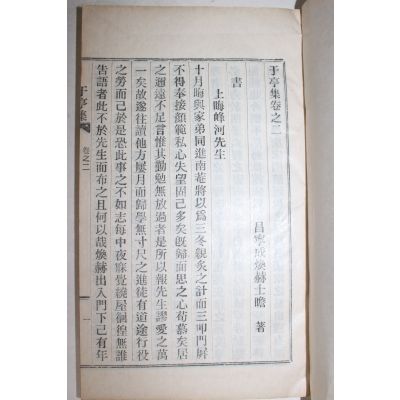 于亭集卷之二
昌寧成煥赫士瞻 著
書
上晦峰河先生
十月晦與家弟同進南菴將以爲三冬親炙之計而三叩門屛
不得奉接顔範私心失望固已多矣旣歸而思之心苟慕矣居
之邇遠不足言惟其勤勉無放過者是所以報先生謬愛之萬
一矣故遂往讀他方屢月而歸學無寸尺之進徒有道途行役
之勞而已於是恐此事之不如志每中夜寐覺繞屋徊徨無誰
告語者此不於先生而布之且何以哉煥赫出入門下已有年
于亭集
卷之二
一